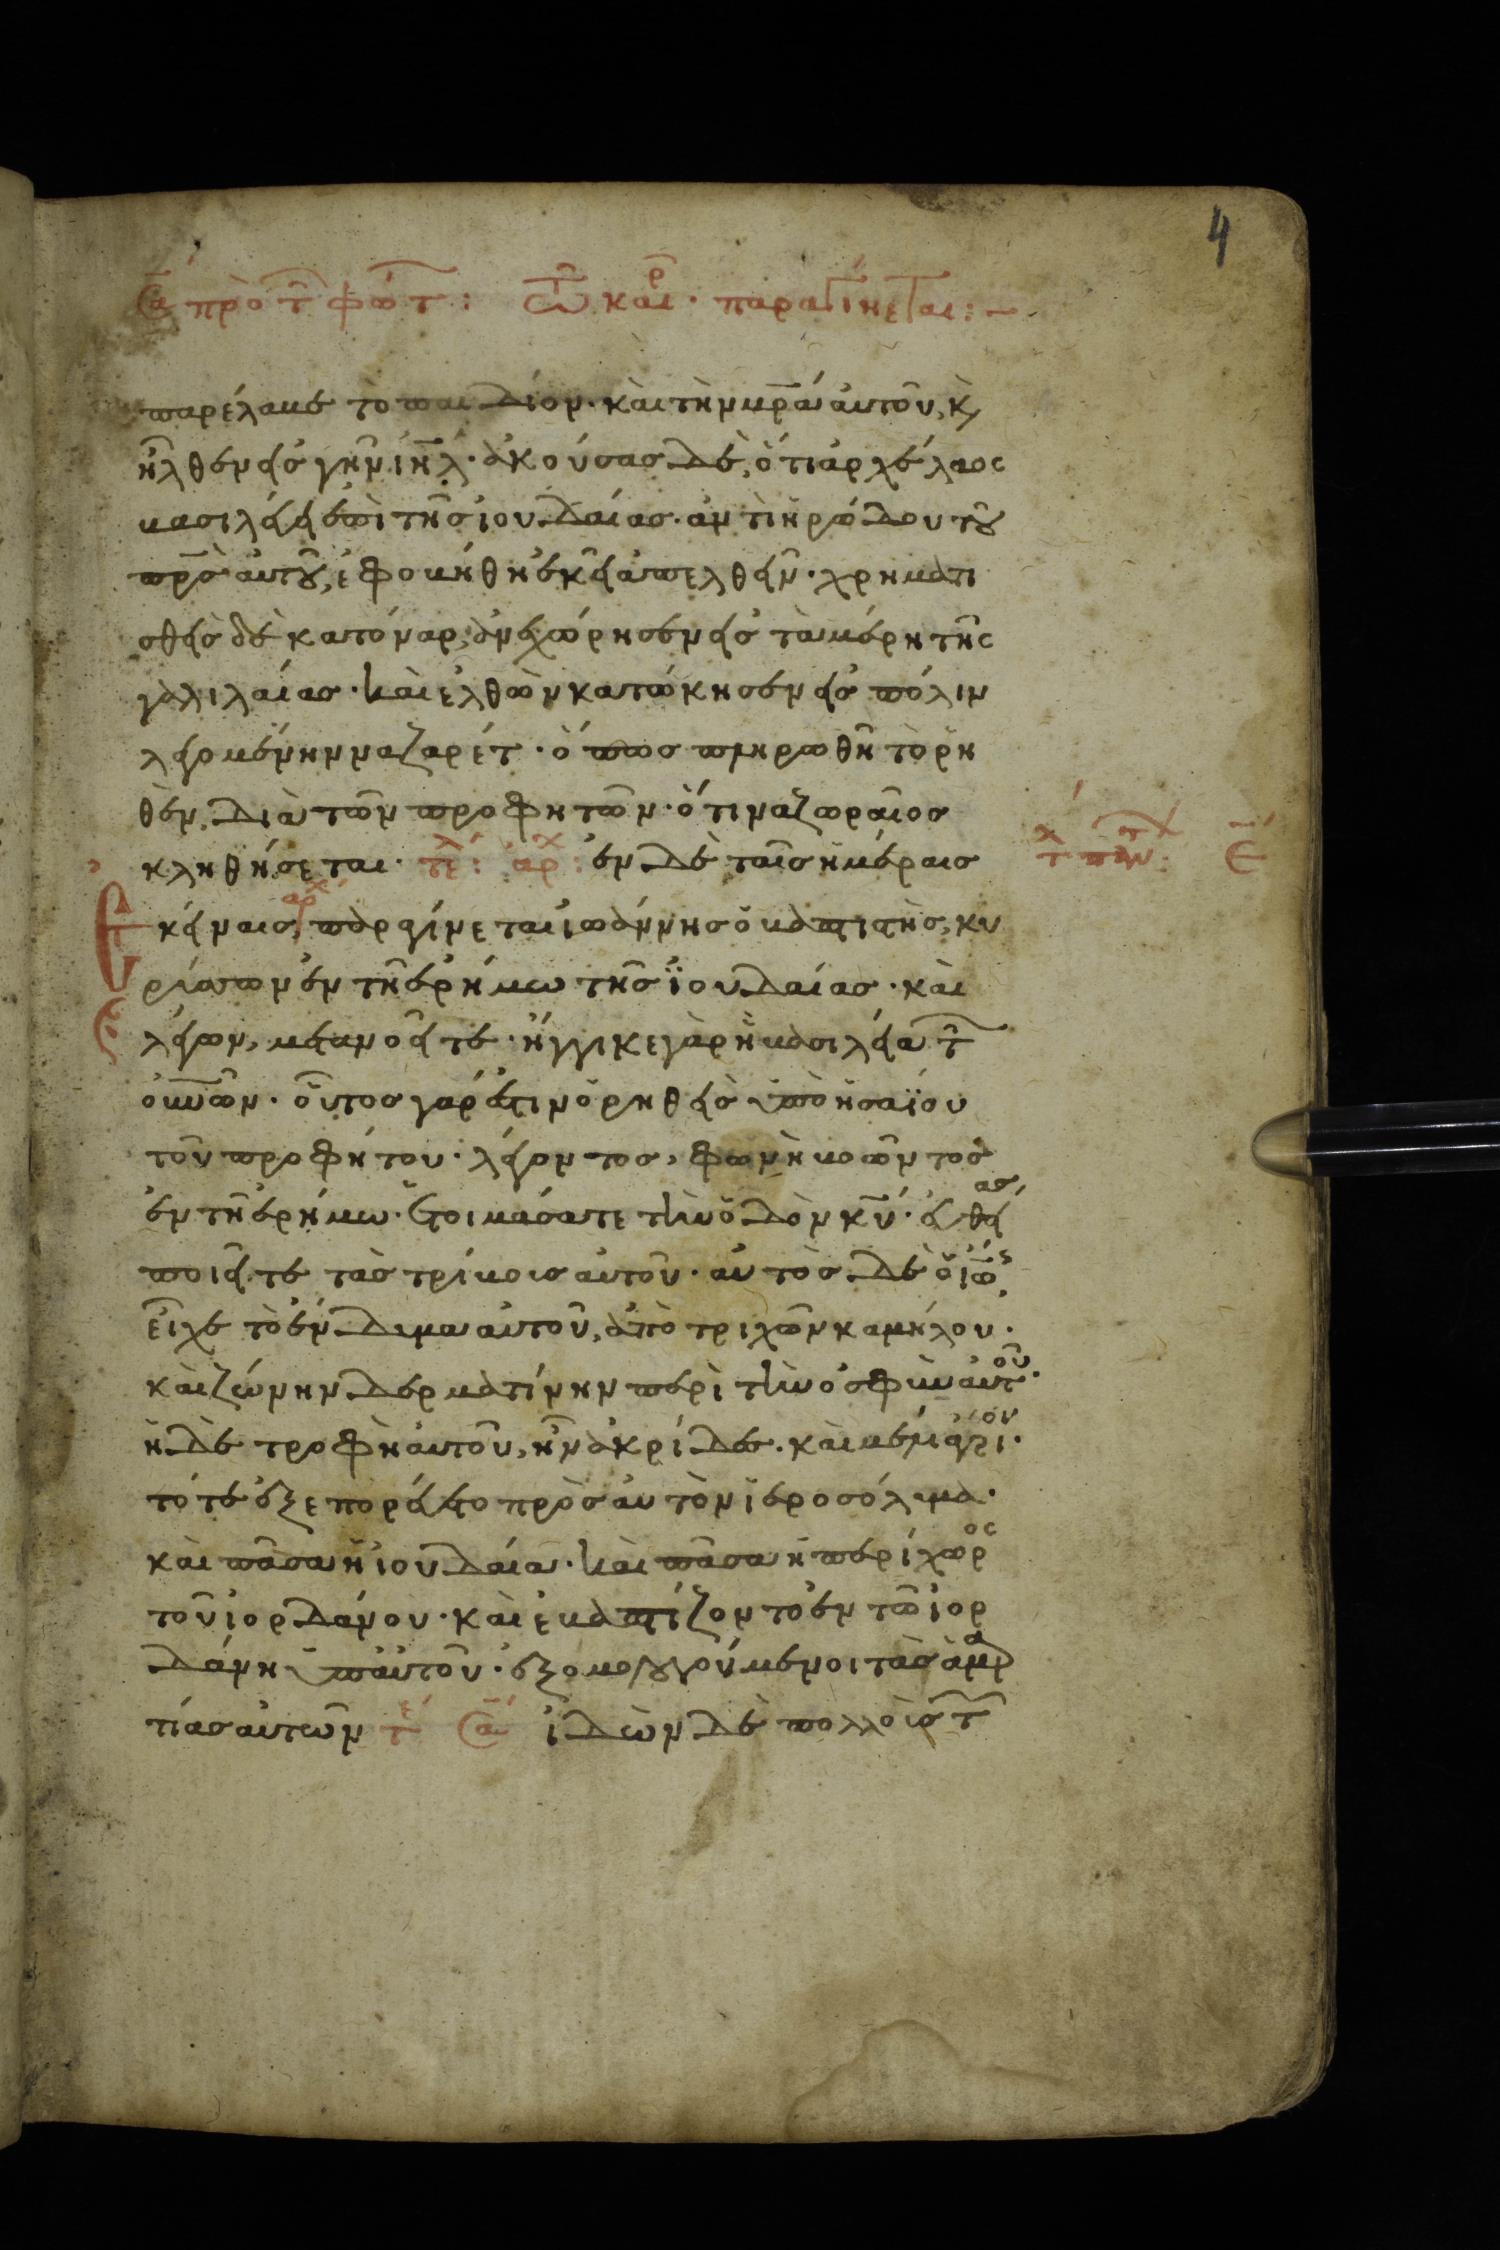 4
πρὸ τ φώτ: τῶ καιρ· παραγίνεται:~
παρέλαβε τὸ παιδίον· καὶ τὴν μρα ἀυτοῦ, κ
ἦλθεν εἰς γῆν ιηλ· ἀκούσας δὲ, ὅτι ἀρχέλαος
βασιλεύει ἐπὶ τῆς ἰουδαίας· ἀντὶ ἡρώδου τοῦ
πρς ἀυτοῦ, ἐφοβήθη ἐκεῖ ἀπελθεῖν· χρηματι
σθεὶς δὲ κατόναρ, ἀνεχώρησεν εἰς τὰ μέρη τῆς
γαλιλαίας· καὶ ἐλθὼν κατώκησεν εἰς πόλιν
λεγομένην ναζαρέτ· ὅπως πληρωθῆ τὸ ρη
θὲν, διὰ τῶν προφητῶν· ὅτι ναζωραῖος
κληθήσεται· τε: αρχ: ἐν δὲ ταῖς ἡμέραις
ἐκείναις, παραγίνεται ἰωάννης ὁ βαπτιστὴς, κη
ρύττων ἐν τῆ ἐρήμω τῆς ἰουδαίας· καὶ
λέγων, μετανοεῖτε· ἤγγικε γὰρ ἡ βασιλεία τ
ουνων· οὗτος γάρ ἐστιν ὁ ρηθεὶς ὑπὸ ἡσαΐου
τοῦ προφήτου· λέγοντος, φωνὴ βοῶντος
ἐν τῆ ἐρήμω· ἑτοιμάσατε τὴν ὁδὸν κυ· εὐθείας
ποιεῖτε τὰς τρίβους ἀυτοῦ· ἀυτὸς δὲ ὁ ἰω
εἶχε τὸ ἔνδυμα ἀυτοῦ, ἀπὸ τριχῶν καμήλου·
καὶ ζώνην δερματίνην περὶ τὴν ὀσφὺν ἀυτοῦ·
ἡ δὲ τροφὴ ἀυτοῦ, ἦν ἀκρίδες· καὶ μέλι ἄγριον·
τότε ἐξεπορεύετο πρὸς ἀυτὸν ἱεροσόλυμα·
καὶ πᾶσα ἡ ἰουδαία· καὶ πᾶσα ἡ περίχωρος
τοῦ ἰορδάνου· καὶ ἐβαπτίζοντο ἐν τῶ ἰορ
δάνη ὑπ ἀυτοῦ· ἐξομολογούμενοι τὰς ἁμαρ
τίας ἀυτῶν ἰδὼν δὲ πολλοὺς τ